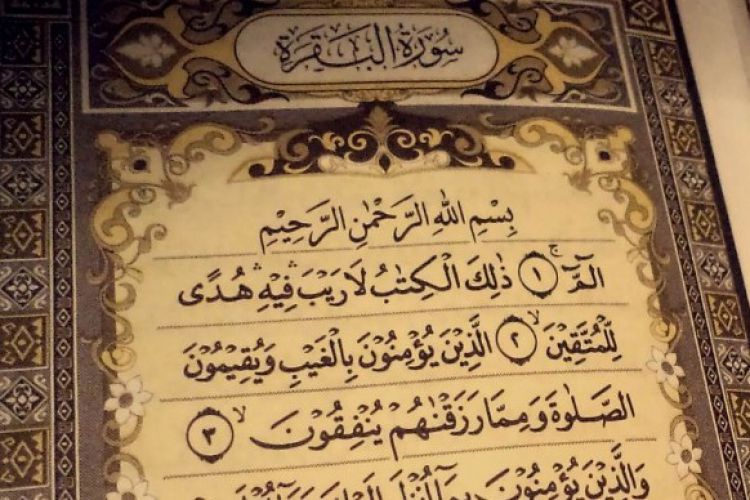 سُورَةُ الْبَقَرَةِ
بِسْمِ اللهِ الرَّحْمٰنِ الرَّحِيْمِ
الٓمّٓ ۚ ١ ذٰلِكَ الْكِتٰبُ لَا رَيْبَ ۛ فِيْهِ ۛ هُدًى
لِّلْمُتَّقِيْنَ ۙ ٢ الَّذِيْنَ يُؤْمِنُوْنَ بِالْغَيْبِ وَيُقِيْمُوْنَ
الصَّلٰوةَ وَمِمَّا رَزَقْنٰهُمْ يُنْفِقُوْنَ ۙ ٣
وَالَّذِيْنَ يُؤْمِنُوْنَ